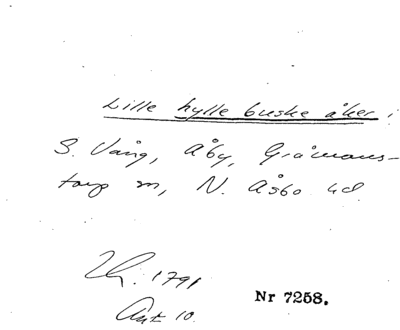 Lille hylle buske åker i
S. Vång, Åby, Gråmans-
torp sn, N. Åsbo hd.
LM. 1791
Akt 10.
Nr 7258.